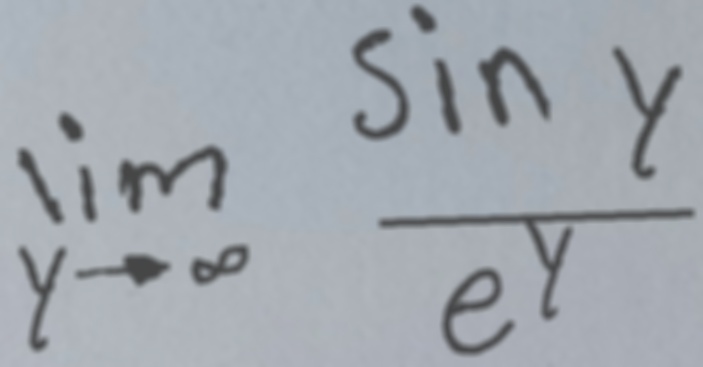 lim sin y
y→∞ e^y